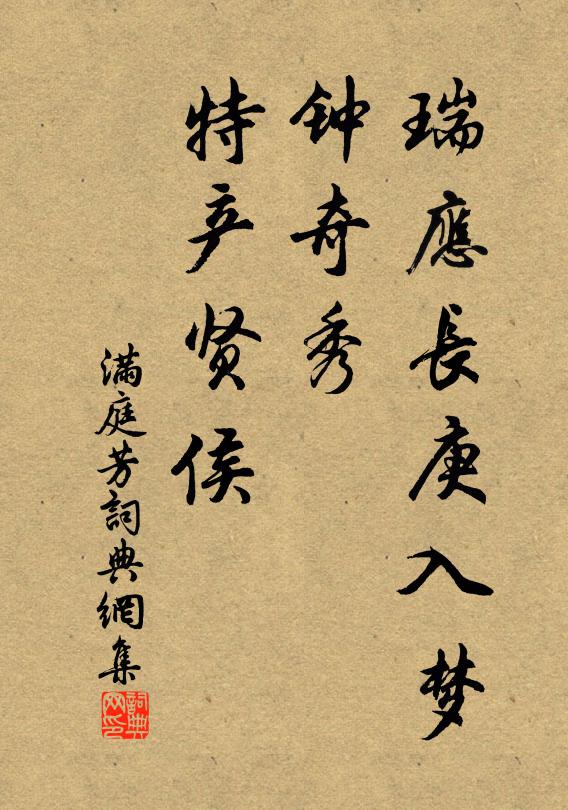 瑞應長庚入梦
钟奇秀
特产贤侯
满庭芳詞典網集
詞典
网印